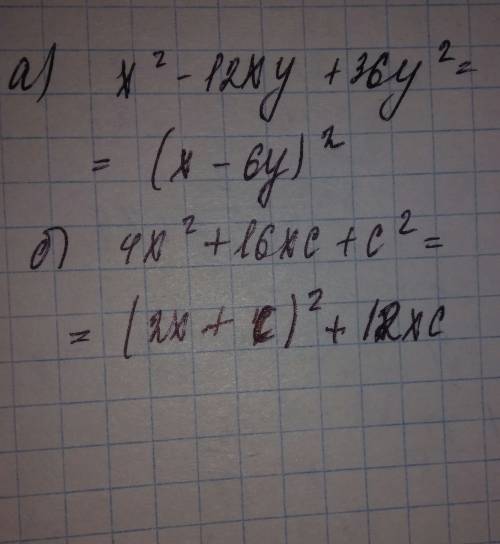 а) x² - 12xy + 36y² =
= (x - 6y)²
б) 4x² + 16xc + c² =
= (2x + c)² + 12xc